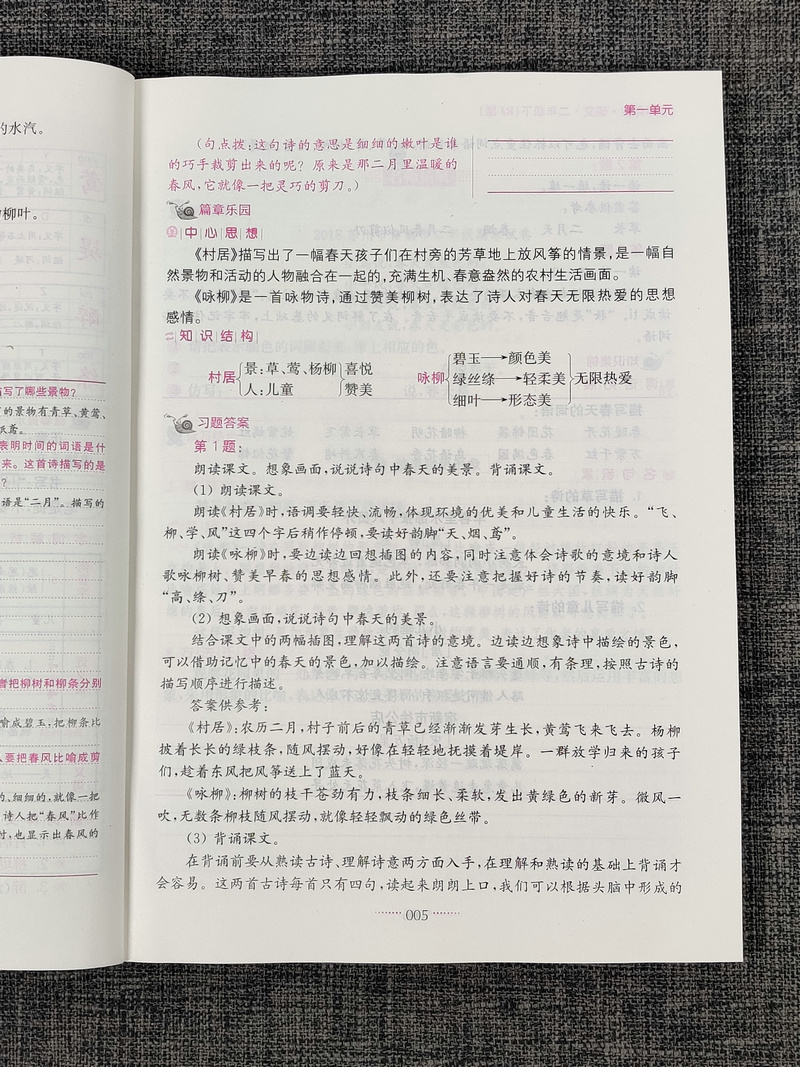 的水汽。
柳叶。
描写了哪些景物?
的景物有青草、黄莺、
表明时间的词语是什
来。这首诗描写的是
语是“二月”。描写的
者把柳树和柳条分别
喻成碧玉;把柳条比
人要把春风比喻成剪
的、细细的,就像一把
诗人把“春风”比作
时,也显示出春风的
第一单元
(句点拨:这句诗的意思是细细的嫩叶是谁
的巧手裁剪出来的呢?原来是那二月里温暖的
春风,它就像一把灵巧的剪刀。)
篇章乐园
中心思想
《村居》描写出了一幅春天孩子们在村旁的芳草地上放风筝的情景,是一幅自
然景物和活动的人物融合在一起的,充满生机、春意盎然的农村生活画面。
《咏柳》是一首咏物诗,通过赞美柳树,表达了诗人对春天无限热爱的思想
感情。
知识结构
村居 景:草、莺、杨柳 喜悦
人:儿童 赞美
咏柳 碧玉→颜色美
绿丝绦→轻柔美 无限热爱
细叶→形态美
习题答案
第1题:
朗读课文。想象画面,说说诗句中春天的美景。背诵课文。
(1)朗读课文。
朗读《村居》时,语调要轻快、流畅,体现环境的优美和儿童生活的快乐。“飞、
柳、学、风”这四个字后稍作停顿,要读好韵脚“天、烟、鸢”。
朗读《咏柳》时,要边读边回想插图的内容,同时注意体会诗歌的意境和诗人
歌咏柳树、赞美早春的思想感情。此外,还要注意把握好诗的节奏,读好韵脚
“高、绦、刀”。
(2)想象画面,说说诗句中春天的美景。
结合课文中的两幅插图,理解这两首诗的意境。边读边想象诗中描绘的景色,
可以借助记忆中的春天的景色,加以描绘。注意语言要通顺,有条理,按照古诗的
描写顺序进行描述。
答案供参考:
《村居》:农历二月,村子前后的青草已经渐渐发芽生长,黄莺飞来飞去。杨柳
披着长长的绿枝条,随风摆动,好像在轻轻地抚摸着堤岸。一群放学归来的孩子
们,趁着东风把风筝送上了蓝天。
《咏柳》:柳树的枝干苍劲有力,枝条细长、柔软,发出黄绿色的新芽。微风一
吹,无数条柳枝随风摆动,就像轻轻飘动的绿色丝带。
(3)背诵课文。
在背诵前要从熟读古诗、理解诗意两方面入手,在理解和熟读的基础上背诵才
会容易。这两首古诗每首只有四句,读起来朗朗上口,我们可以根据头脑中形成的
005